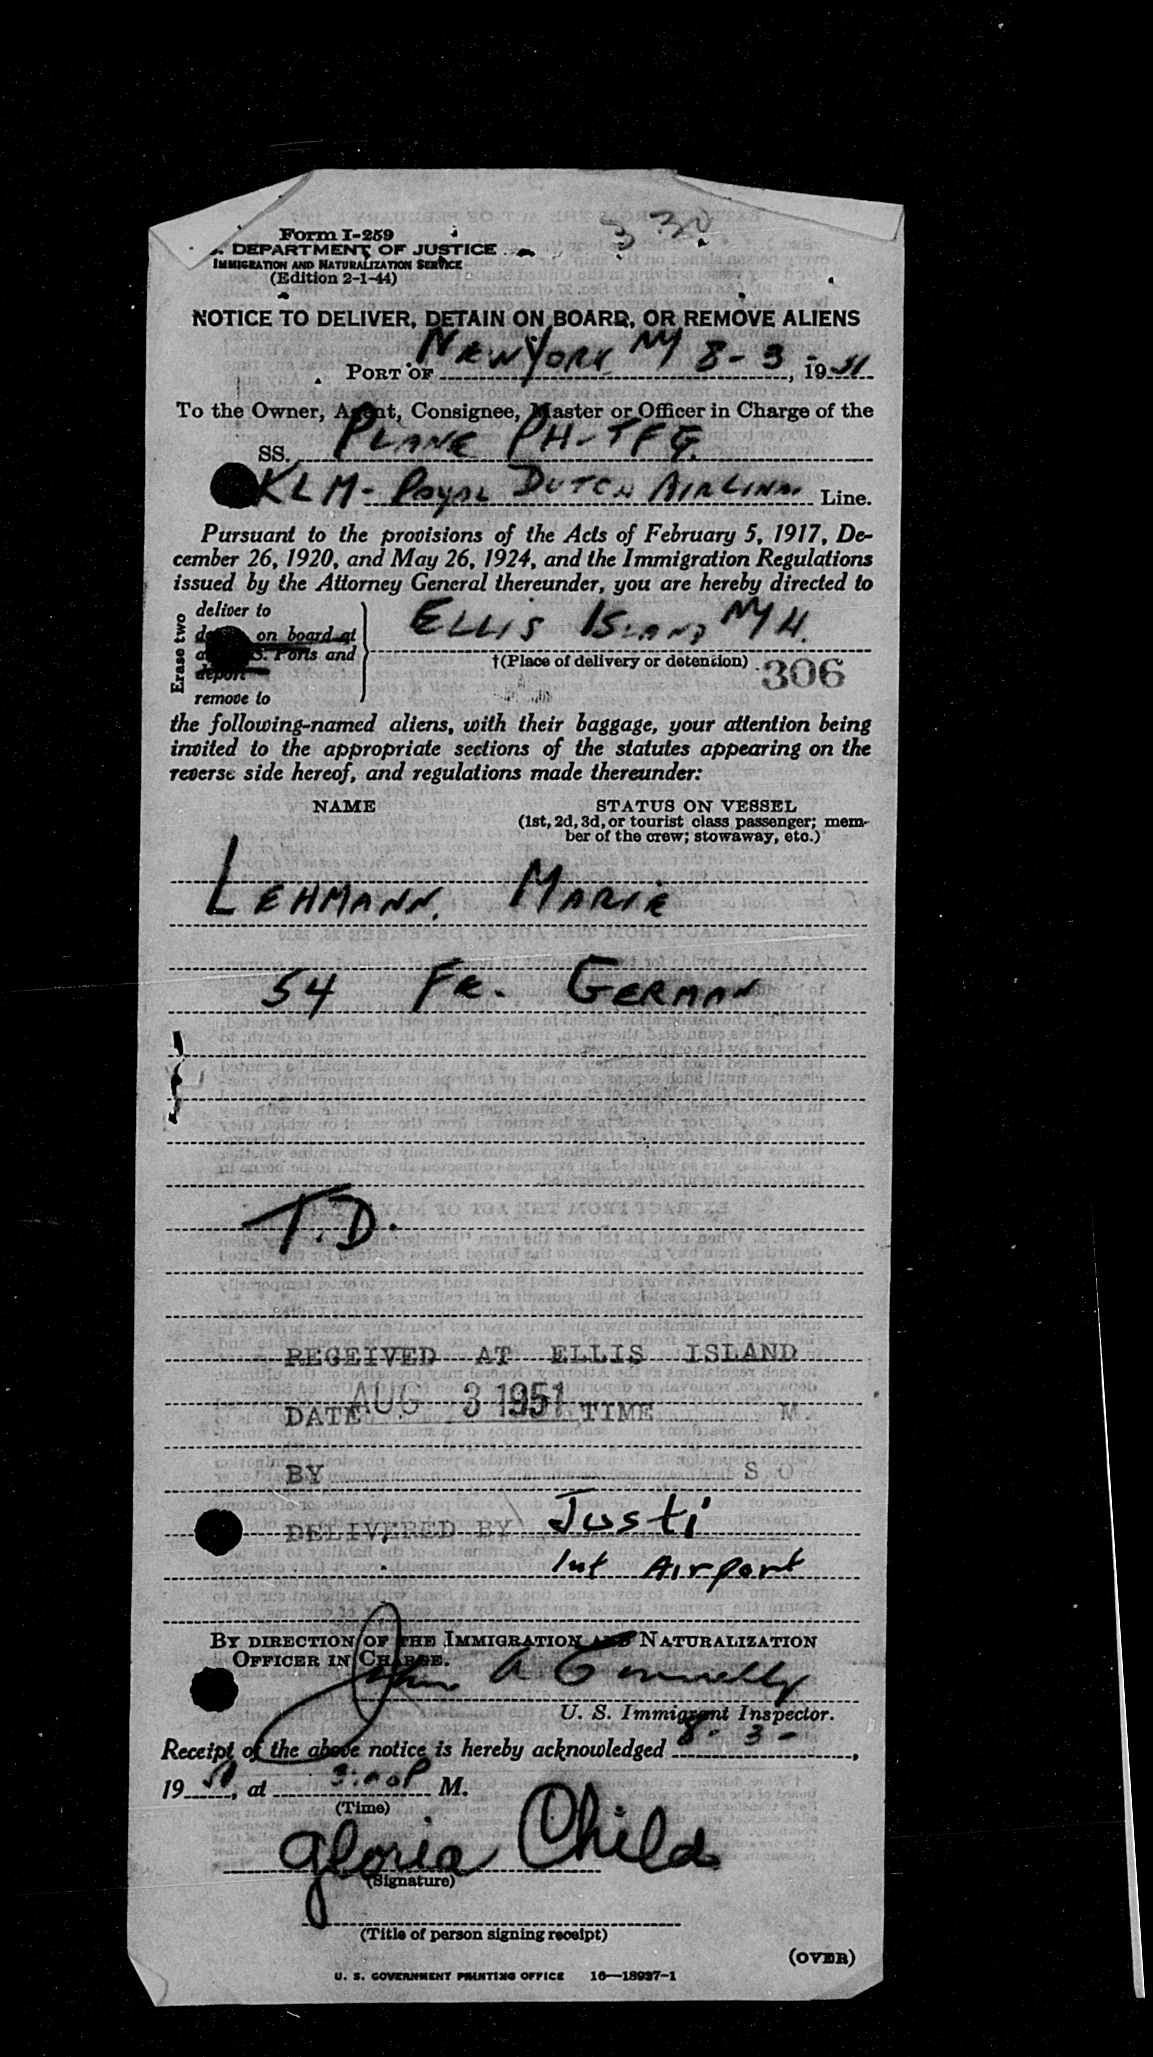 3 30
Form I-259
. DEPARTMENT OF JUSTICE
IMMIGRATION AND NATURALIZATION SERVICE
(Edition 2-1-44)
NOTICE TO DELIVER, DETAIN ON BOARD, OR REMOVE ALIENS
PORT OF New York NY 8-3-, 1951
To the Owner, Agent, Consignee, Master or Officer in Charge of the
SS. PLANE PH-TFG
KLM- ROYAL DUTCH AIRLINES Line.
Pursuant to the provisions of the Acts of February 5, 1917, De-
cember 26, 1920, and May 26, 1924, and the Immigration Regulations
issued by the Attorney General thereunder, you are hereby directed to
Erase two
deliver to
on board at
S. Ports and
deport
remove to
ELLIS ISLAND NYH.
†(Place of delivery or detention)
306
the following-named aliens, with their baggage, your attention being
invited to the appropriate sections of the statutes appearing on the
reverse side hereof, and regulations made thereunder:
NAME STATUS ON VESSEL
(1st, 2d, 3d, or tourist class passenger; mem-
ber of the crew; stowaway, etc.)
LEHMANN. MARIE
54 Fe. GERMAN
T.D.
RECEIVED AT ELLIS ISLAND
DATE AUG 3 1951 TIME M.
BY S O
DELIVERED BY Justi
Int Airport
BY DIRECTION OF THE IMMIGRATION AND NATURALIZATION
OFFICER IN CHARGE.
John A Connelly
U. S. Immigrant Inspector.
Receipt of the above notice is hereby acknowledged 8-3-,
1951, at 3:00P M.
(Time)
Gloria Childs
(Signature)
(Title of person signing receipt)
(OVER)
U. S. GOVERNMENT PRINTING OFFICE 16—18937-1